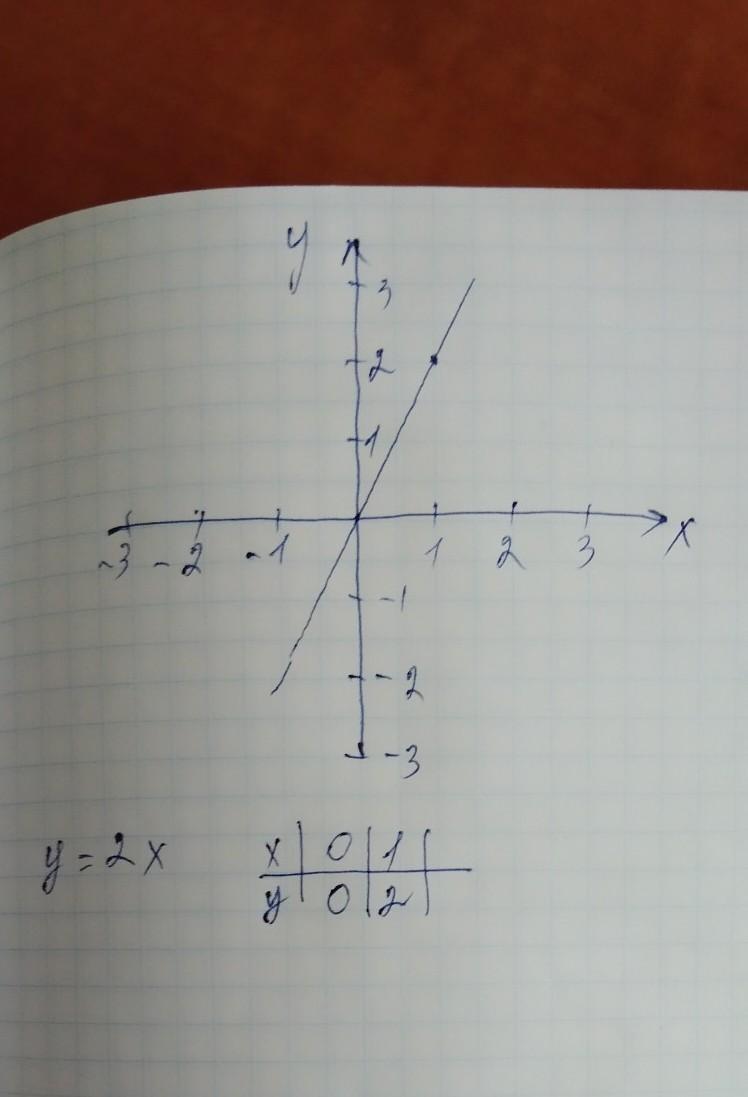 y
3
2
1
-3 -2 -1 1 2 3 x
-1
-2
-3
y = 2x
x | 0 | 1 |
y | 0 | 2 |